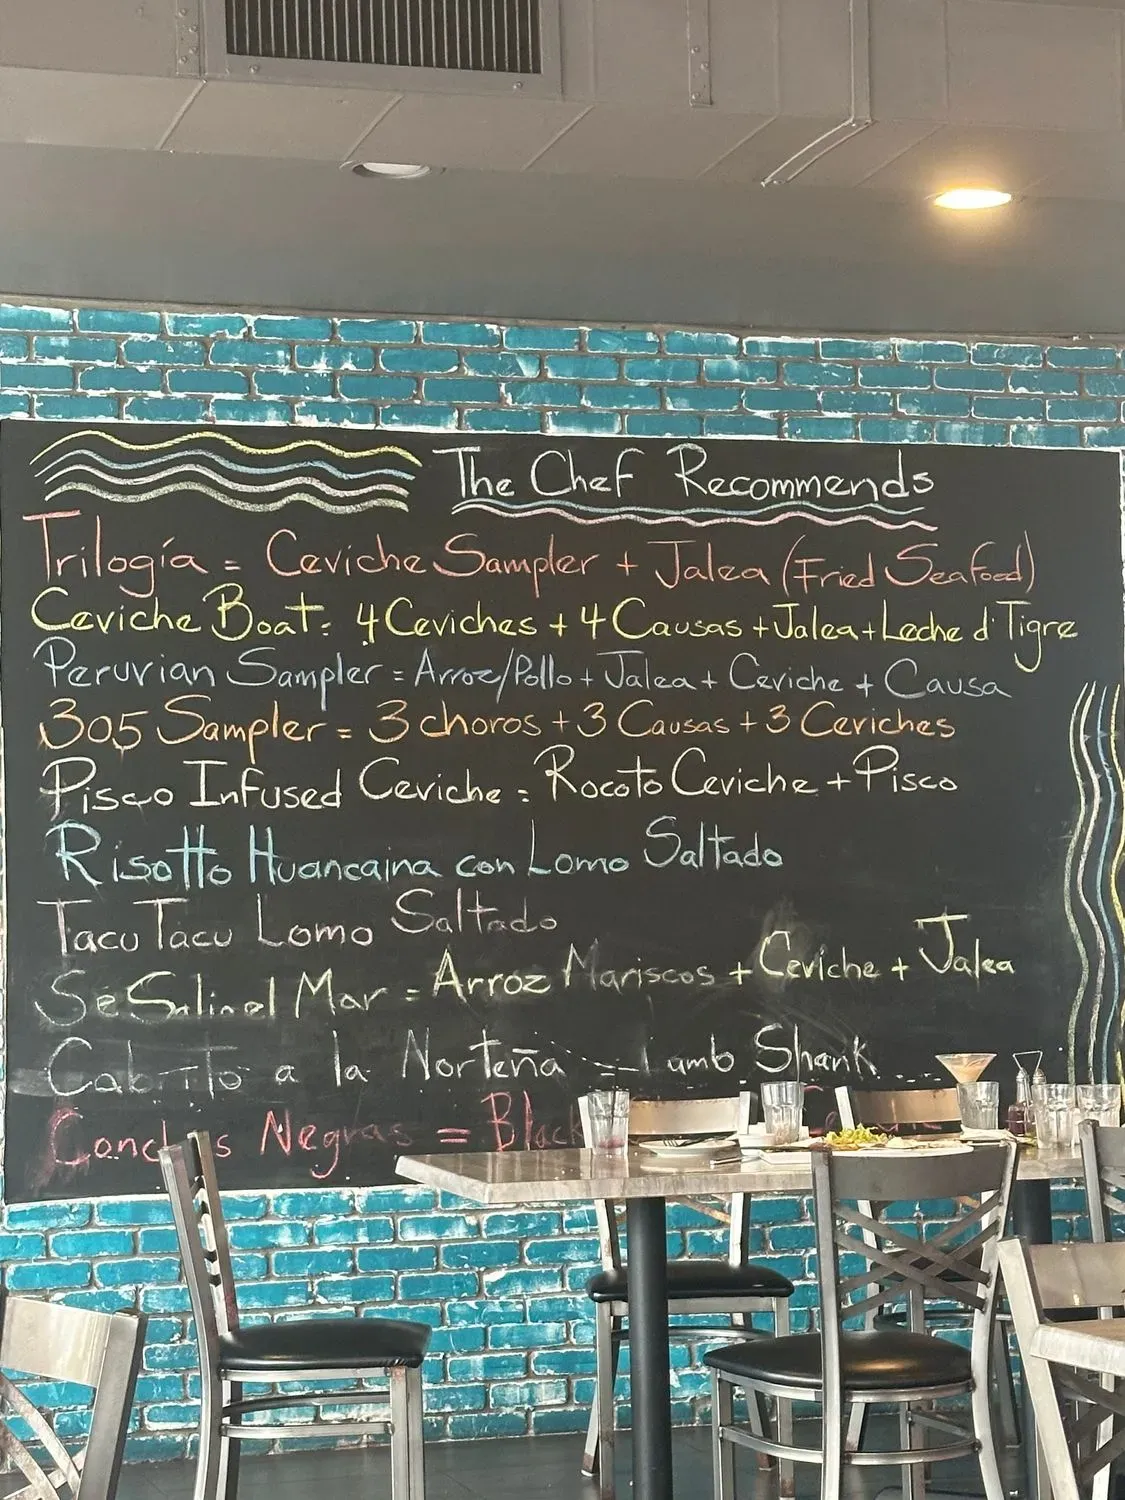 The Chef Recommends
Trilogía = Ceviche Sampler + Jalea (Fried Seafood)
Ceviche Boat: 4 Ceviches + 4 Causas + Jalea + Leche d' Tigre
Peruvian Sampler = Arroz/Pollo + Jalea + Ceviche + Causa
305 Sampler = 3 choros + 3 Causas + 3 Ceviches
Pisco Infused Ceviche = Rocoto Ceviche + Pisco
Risotto Huancaina con Lomo Saltado
Tacu Tacu Lomo Saltado
Se Salio el Mar = Arroz Mariscos + Ceviche + Jalea
Cabrito a la Norteña = Lamb Shank
Conchas Negras = Black